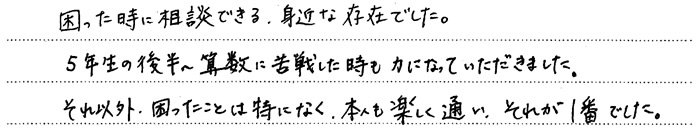 困った時に相談できる、身近な存在でした。
5年生の後半〜算数に苦戦した時も力になっていただきました。
それ以外、困ったことは特になく、本人も楽しく通い、それが1番でした。